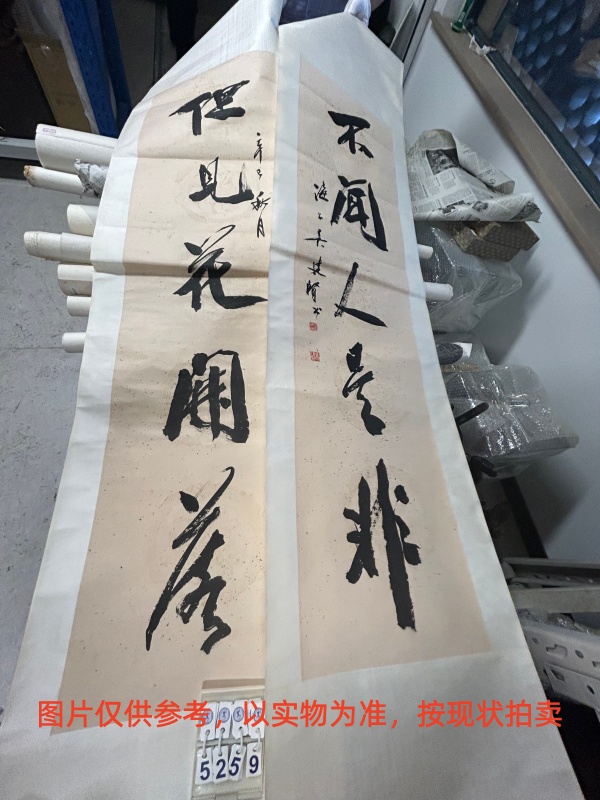 不聞人是非
海上吳建賢书
但見花開落
辛巳秋月
图片仅供参考，以实物为准，按现状拍卖
5259